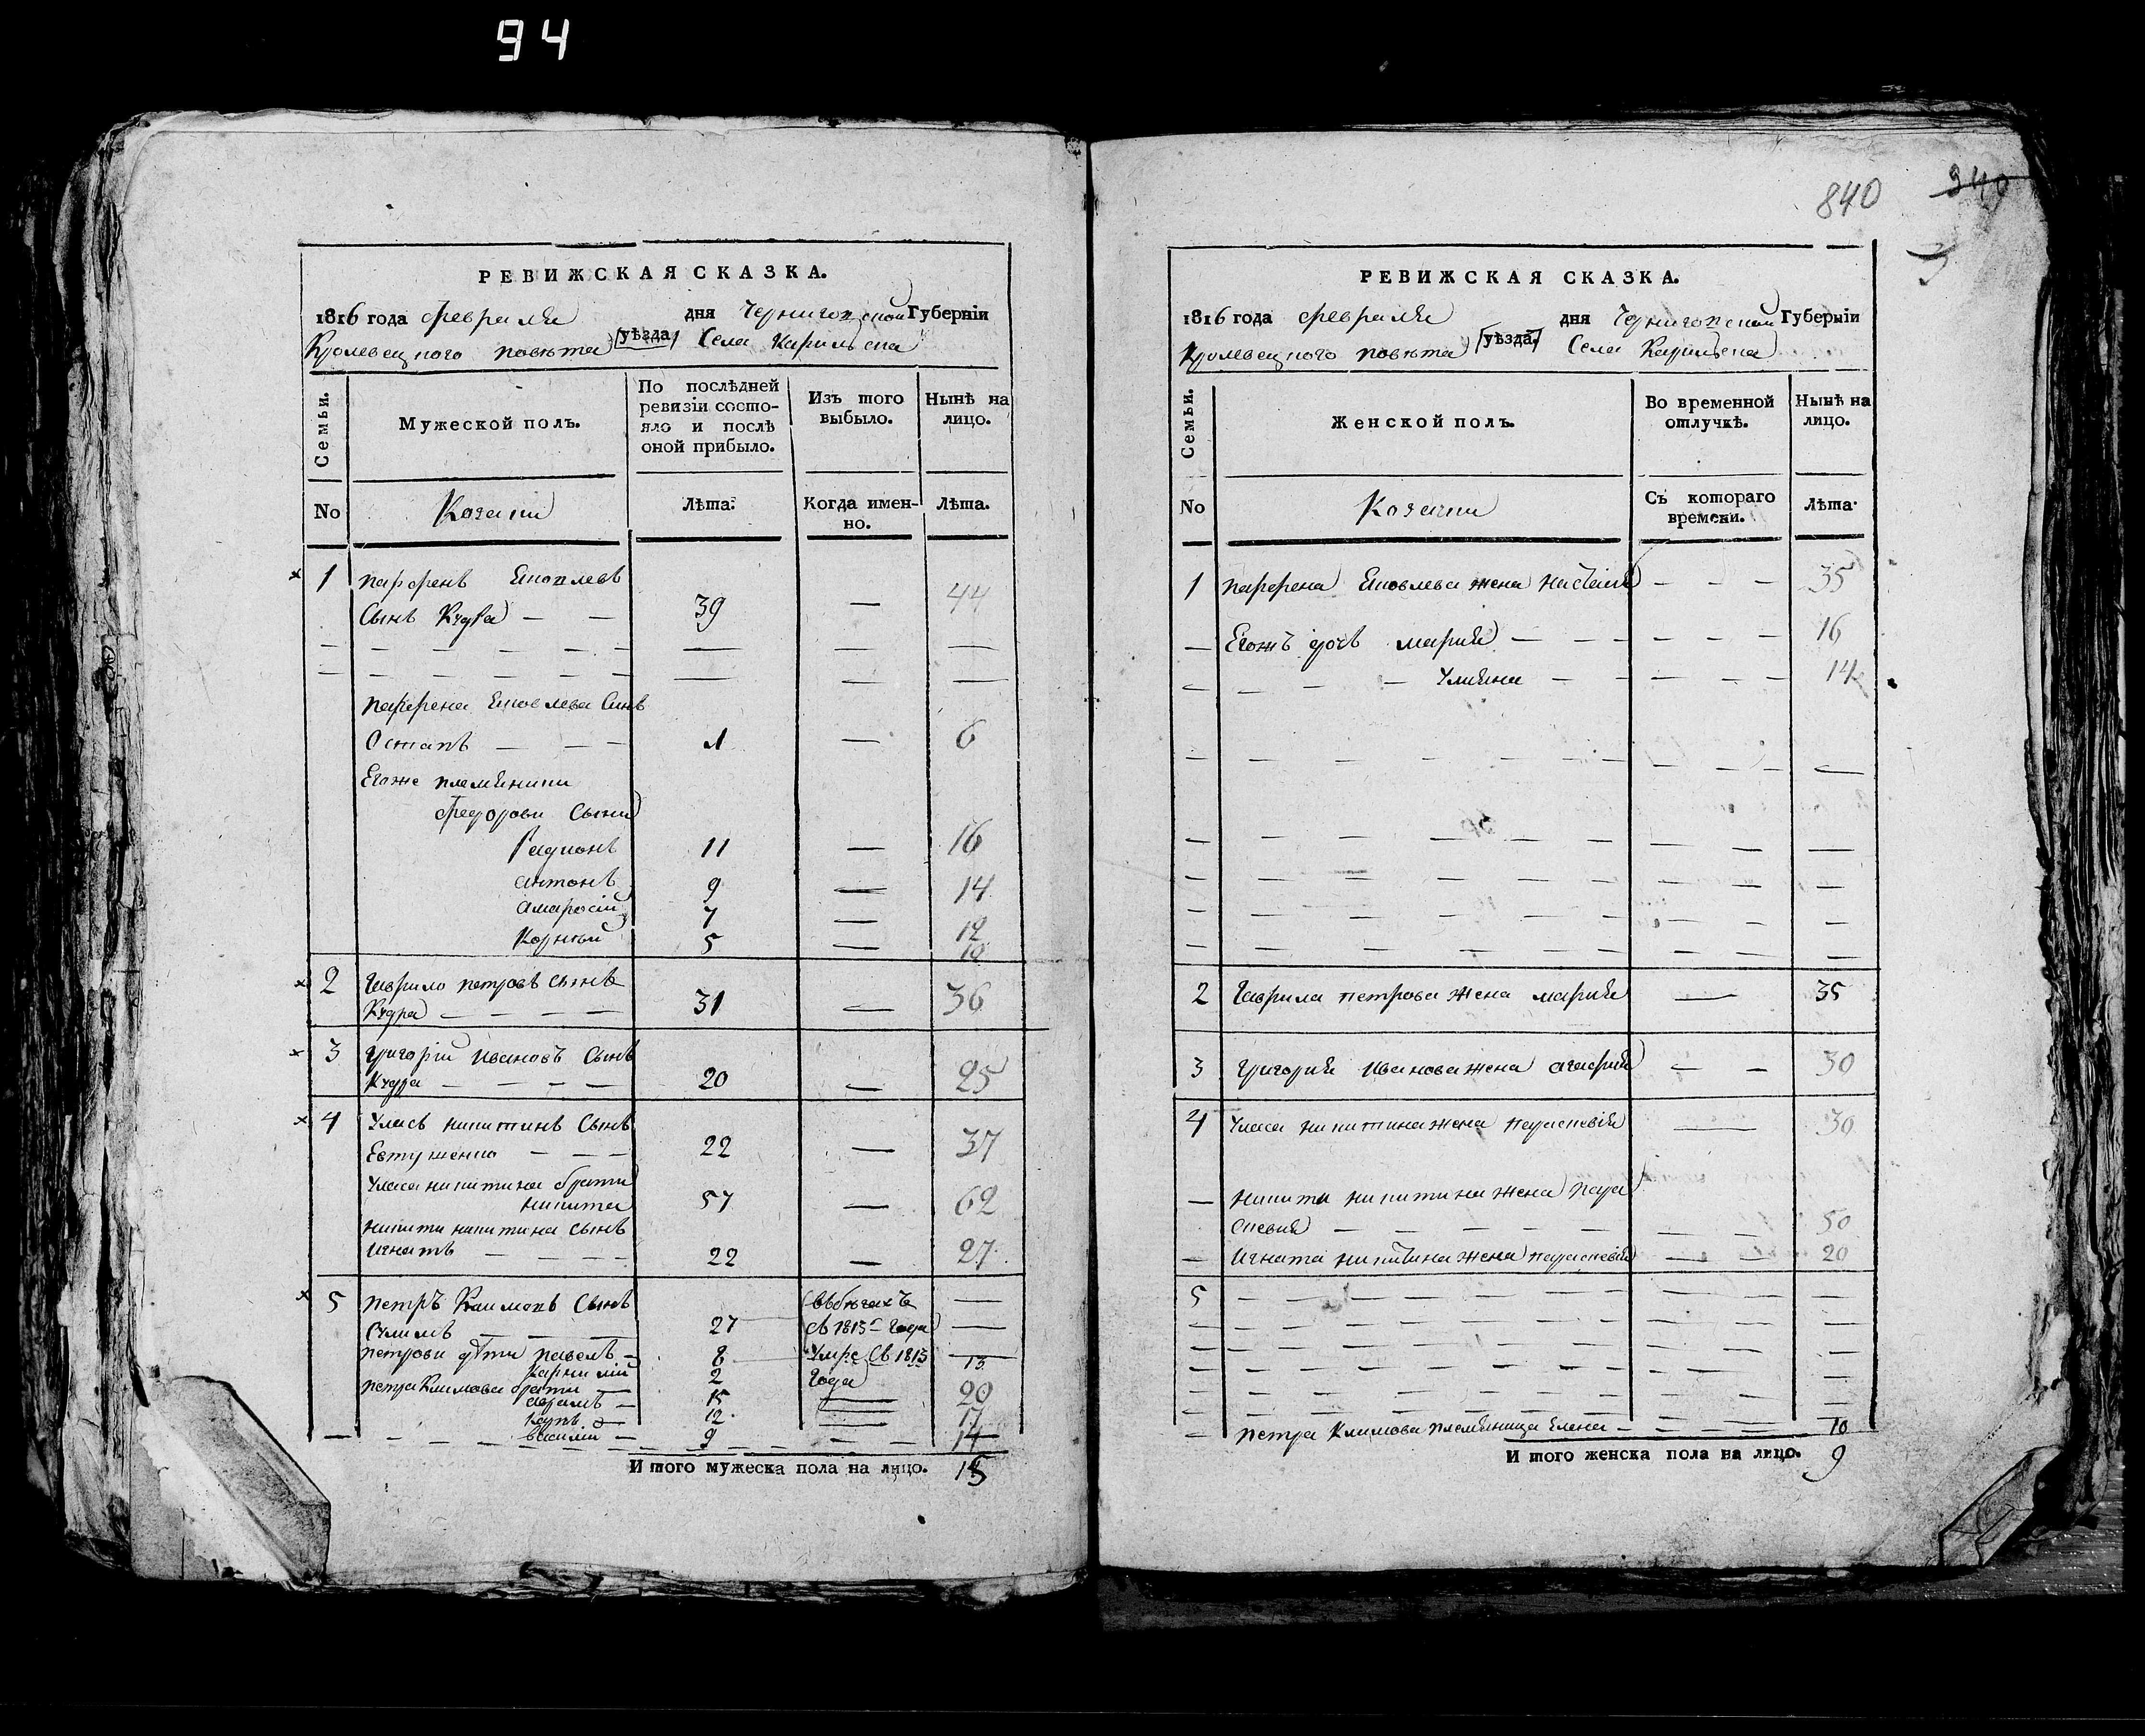 94
РЕВИЖСКАЯ СКАЗКА.
1816 года Февраля дня Черниговской Губерніи
Кролевецкого повѣта уѣзда Села Карильска
Семьи. Мужеской полъ. По послѣдней ревизіи состояло и послѣ оной прибыло. Изъ того выбыло. Нынѣ на лицо.
No Козаки Лѣта. Когда именно. Лѣта.
1 Парфенъ Яковлевъ
Сынъ Кудра — — 39 — 44
Парфена Яковлева Синъ
Остапъ — — — 1 — 6
Егоже племяники
Федорови Сыни
Радионъ 11 — 16
Антонъ 9 — 14
Амвросій 7 — 12
Корней 5 — 10
2 Гаврило петровъ сынъ
Кудра — — — — 31 — 36
3 Григорій Ивановъ Сынъ
Кудра — — — — 20 — 25
4 Уласъ никитинъ Сынъ
Евтушенко — — — 22 — 37
Уласа никитина братъ
никита 57 — 62
никити никитина сынъ
Игнатъ — — — — 22 — 27
5 петръ Климовъ Сынъ въбѣгахъ —
Сулимъ — — — 27 съ 1813 года —
петрови дѣти павелъ — 8 Умре въ 1813 —
2 года 13
петра Климова брати —
аврамъ — 15 — 20
карпъ — 12 — 17
василій — 9 — 14
И того мужеска пола на лицо. 15
840 340
РЕВИЖСКАЯ СКАЗКА.
1816 года Февраля дня Черниговской Губерніи
Кролевецкого повѣта уѣзда. Села Карильска
Семьи. Женской полъ. Во временной отлучкѣ. Нынѣ на лицо.
No Козачки Съ котораго времени. Лѣта.
1 Парфена Яковлева жена настася — — — 35
— Егожъ дочь мария — — — — — — 16
— — — — Улияна — — — — — 14
2 Гаврила петрова жена мария — 35
3 Григория Иванова жена агафия — — 30
4 Уласа никитина жена параскевія — 30
— никити никитина жена пара
скевия — — — — — — — 50
— Игната никитина жена параскевия — — 20
5 — — — — — — —
— петра Климова племяница Елена — — — — — 10
И того женска пола на лицо. 9